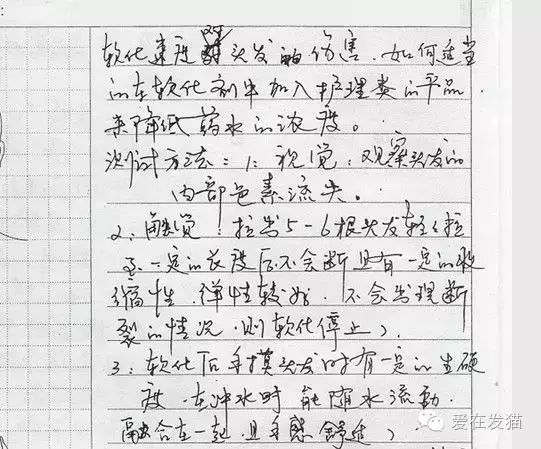 软化速度对头发的伤害.如何适当
的在软化剂中加入护理类的产品
来降低药水的浓度。
测试方法:1:视觉:观察头发的
内部色素流失。
2:触觉:拉出5-6根头发轻轻拉
至一定的长度后不会断且有一定的收
缩性.弹性较好.不会出现断
裂的情况.则软化停止)
3:软化后手摸头发时有一定的生硬
度.在冲水时能随水流动.
融合在一起.且手感舒适)
爱在发猫